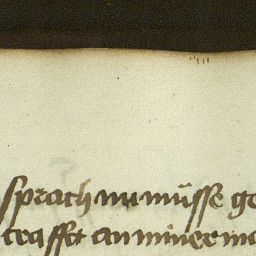 sprach nu müsse ge
crafft an miner ma